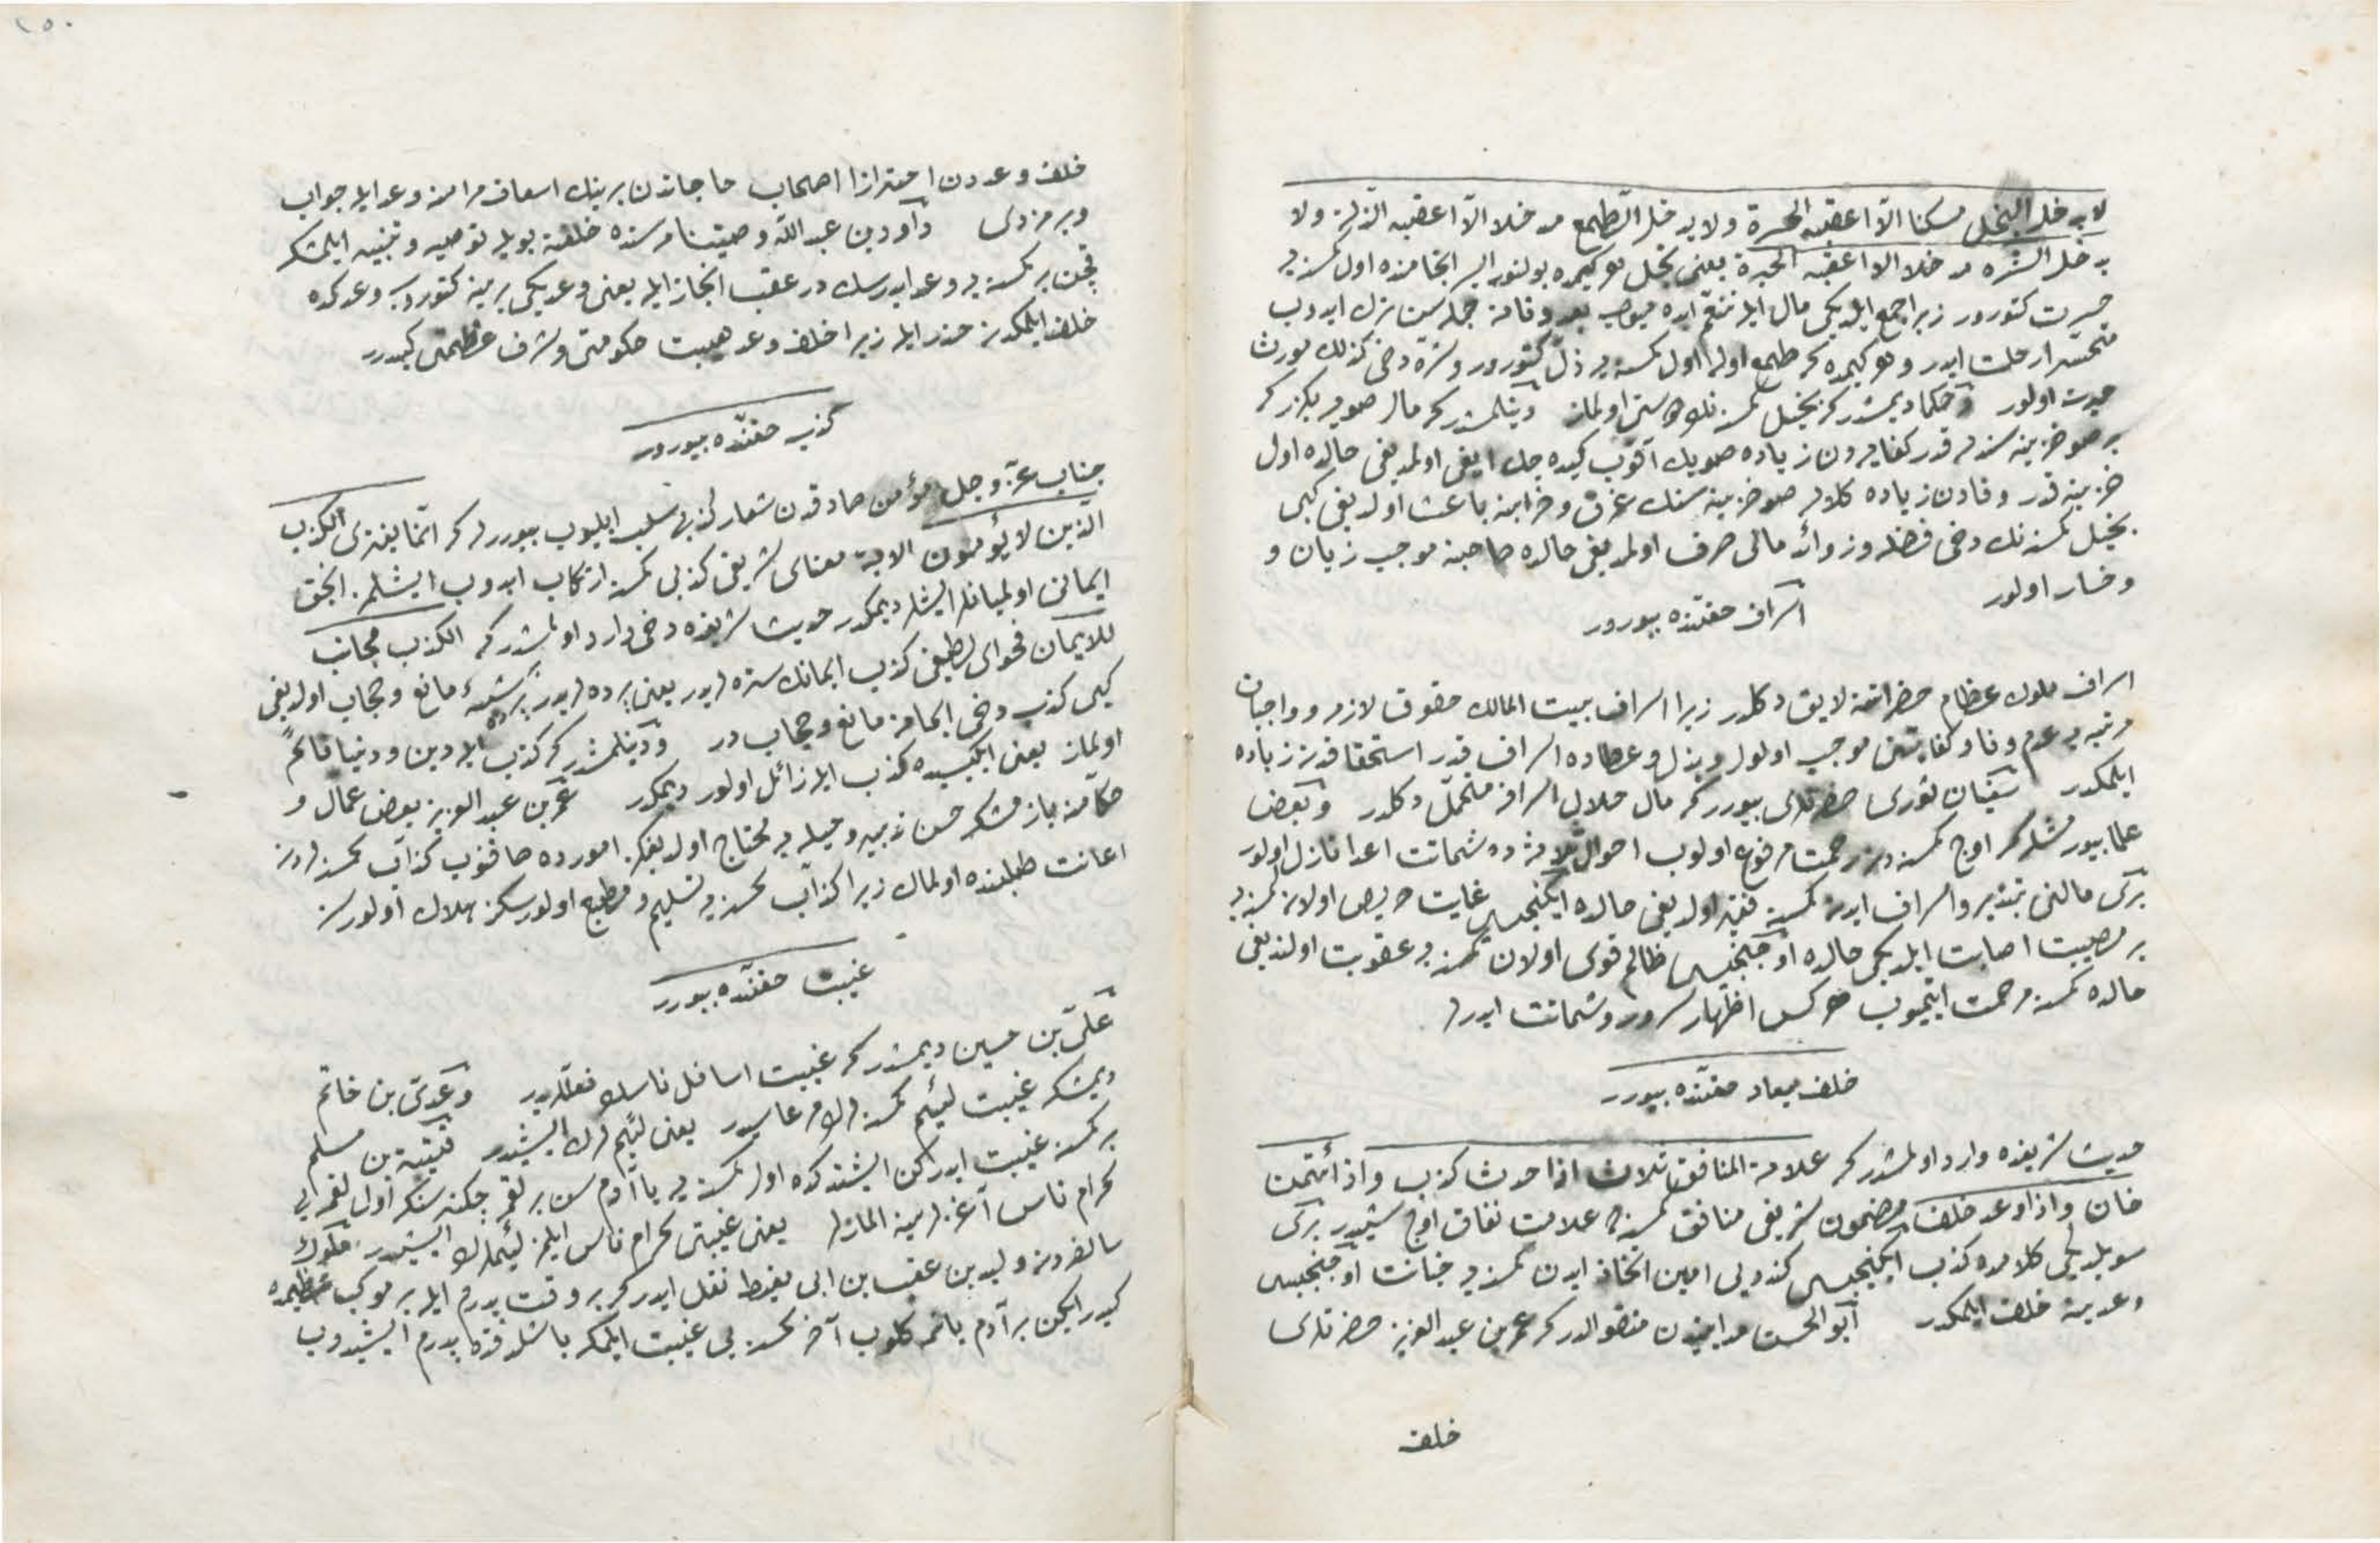 لا يدخل البخل مسكنا الّا اعقبه الحسرة ولا يدخل الطمع مدخلا الّا اعقبه الذلة ولا
يدخل الشره مدخلا الا اعقبه الحيرة يعنى بخل هر كيمده بولنور ايسه انجامنده اول كمسنه يه
حسرت كتورور زيرا جمع ايلديكى مال ايله تنعم ايده ميوب بعد وفاته جمله سن ترك ايدوب
متحسّرا رحلت ايدر و هر كيمده كه طمع اوله اول كمسنه يه ذلّ كتورور و شره دخى كذلك مورث
حيرت اولور و حكما ديمشدر كه بخيل كمسنه نك اولماز دينلمشدر كه مال صويه بكزر كه
بر صو خزينه سنه قدر كفايه دن زياده صويك آقوب كيده جك ايغى اولمديغى حالده اول
خزينه قدر وفادن زياده كلان صو خزينه سنك غرق و خرابنه باعث اولديغى كبى
بخيل كمسنه نك دخى فضله و زوائد مالى صرف اولمديغى حالده صاحبنه موجب زيان و
و خسار اولور
اسراف حقنده بيورور
اسراف ملوك عظام حضراتنه لايق دكلدر زيرا اسراف بيت المالك حقوق لازم و واجبات
مرتبه يه عدم وفا و كفايتنى موجب اولور و بذل و عطاده اسراف قدر استحقاقدن زياده
ايلمكدر سفيان ثورى حضرتلرى بيورر كه مال حلال اسرافه متحمّل دكلدر و بعض
علما بيورمشلر كه اوج كمسنه دن رحمت مرفوع اولوب احواللرنده شماتت اعدا نازل اولور
برى مالنى تبذير و اسراف ايدن كمسنه فقير اولديغى حالده ايكنجيسى غايت حريص اولان كمسنه يه
بر مصيبت اصابت ايلديكى حالده اوچنجيسى ظالم قوى اولان كمسنه يه عقوبت اولنديغى
حالده كمسنه مرحمت ايتميوب هركس اظهار سرور و شماتت ايدرلر
خلف ميعاد حقنده بيورر
حديث شريفده وارد اولمشدر كه علامة المنافق ثلاث اذا حدث كذب واذا أئتمن
خان واذا وعد خلف مضمون شريفى منافق كمسنه ده علامت نفاق اوج شيدر برى
سويلديكى كلامده كذب ايكنجيسى كندويى امين اتخاذ ايدن كمسنه يه خيانت اوچنجيسى
وعدينه خلف ايلمكدر ابو الحسن مدايندن منقولدر كه عمر بن عبد العزيز حضرتلرى
خلف
خلف وعددن احترازا اصحاب حاجاتدن برينك اسعاف مرامنه وعد ايله جواب
ويرمزدى داود بن عبد الله وصيتنامه سنده خلفنه بويله توصيه و تنبيه ايلمشكه
قچن بر كمسنه يه وعد ايدرسك در عقب انجاز ايله يعنى وعديكى يرينه كتوروب وعدكده
خلف ايلمكدن حذر ايله زيرا خلف وعد هيبت حكومتى و شرف عظمتى كيدرر
كذب حقنده بيورور
جناب عزّ و جل مؤمن صادقدن شعار كذبى سلب ايليوب بيوررلر كه انّما يفترى الكذب
الّذين لا يؤمنون الاية معناى شريفى كذبى كمسنه ارتكاب ايدوب ايشلمز انجق
ايمانى اولميانلر ايشلر ديمكدر حديث شريفده دخى وارد اولمشدر كه الكذب مجانب
للايمان فحواى لطيفى كذب ايمانك ستره لريدر يعنى پرده لريدر پرده بر شيئه مانع و حجاب اولديغى
كبى كذب دخى ايمانه مانع و حجاب در و دينلمشدر كه كذب ايله دين و دنيا قائم
اولماز يعنى ايكيسيده كذب ايله زائل اولور ديمكدر عمر بن عبد العزيز بعض عمال و
حكّامنه يازمشكه حسن تدبير و حيله يه محتاج اولديغكز امورده صاقنوب كذّاب كمسنه لردن
اعانت طلبنده اولمالك زيرا كذّاب كمسنه يه تسليم و مطيع اولورسكز هلاك اولورسز
غيبت حقنده بيورر
علىّ بن حسين ديمشدر كه غيبت اسافل ناسك فعللريدر و عدىّ بن حاتم
ديمشكه غيبت لئيم كمسنه لرك مرعاسيدر يعنى لئيملرك ايشيدر قتيبة بن مسلم
بر كمسنه غيبت ايدركن ايشتدكده اول كمسنه يه يا آدم سن بر لقمه چكنرسنكه اول لقمه يى
كرام ناس آغزلرينه المازلر يعنى غيبتى كرام ناس ايلمز لئيملرك ايشيدر ملوك
سالفه دن وليد بن عقبه بن ابى معيط نقل ايدر كه بر وقت پدرم ايله بر موكب عظيمده
كيدر ايكن بر آدم يانمه كلوب آخر كمسنه يى غيبت ايلمكه باشلدقده پدرم ايشيدوب